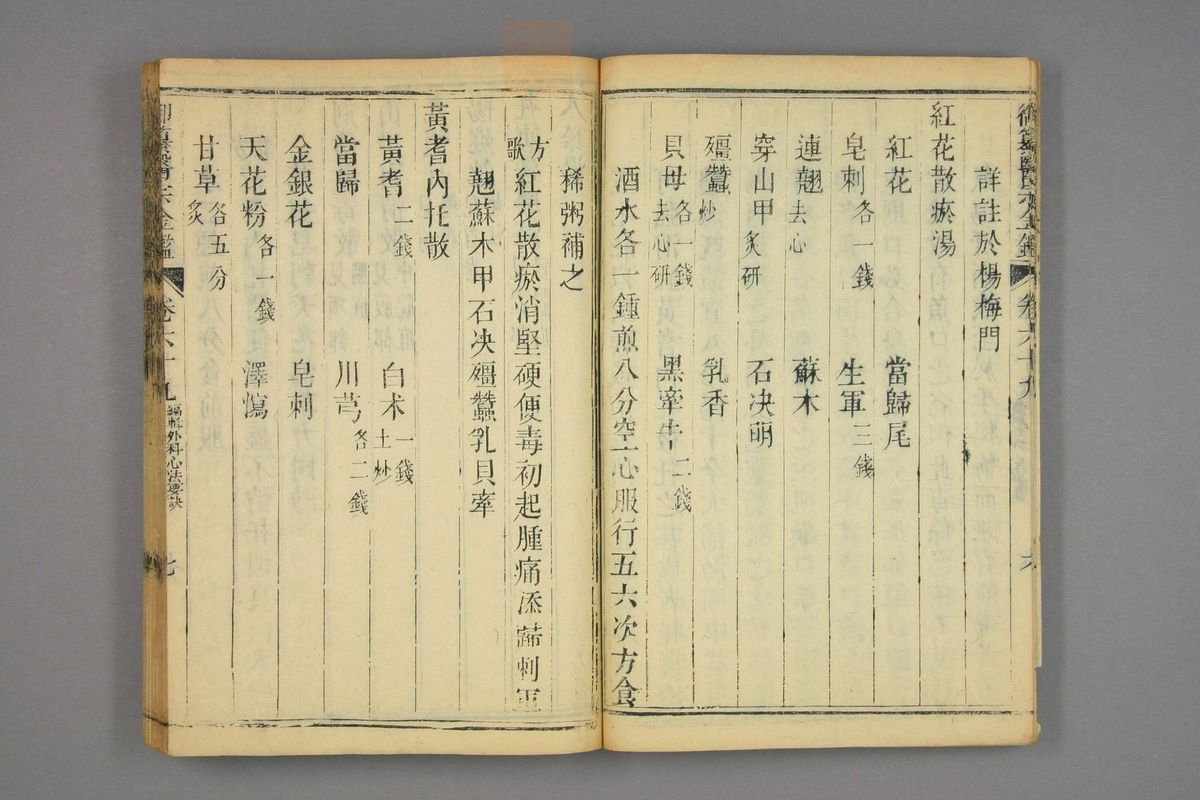 御纂醫宗金鑑 卷六十九 六
詳註於楊梅門
紅花散瘀湯
紅花 當歸尾
皂刺各一錢 生軍三錢
連翹去心 蘇木
穿山甲炙研 石决明
殭蠶炒 乳香
貝母去心研各一錢 黑牽牛二錢
酒水各一鍾煎八分空心服行五六次方食
稀粥補之
方歌 紅花散瘀消堅硬便毒初起腫痛添歸刺軍
翹蘇木甲石决殭蠶乳貝牽
黃耆內托散
黃耆二錢 白术土炒一錢
當歸 川芎各二錢
金銀花 皂刺
天花粉各一錢 澤瀉
甘草炙各五分
御纂醫宗金鑑 卷六十九 編輯外科心法要訣 七